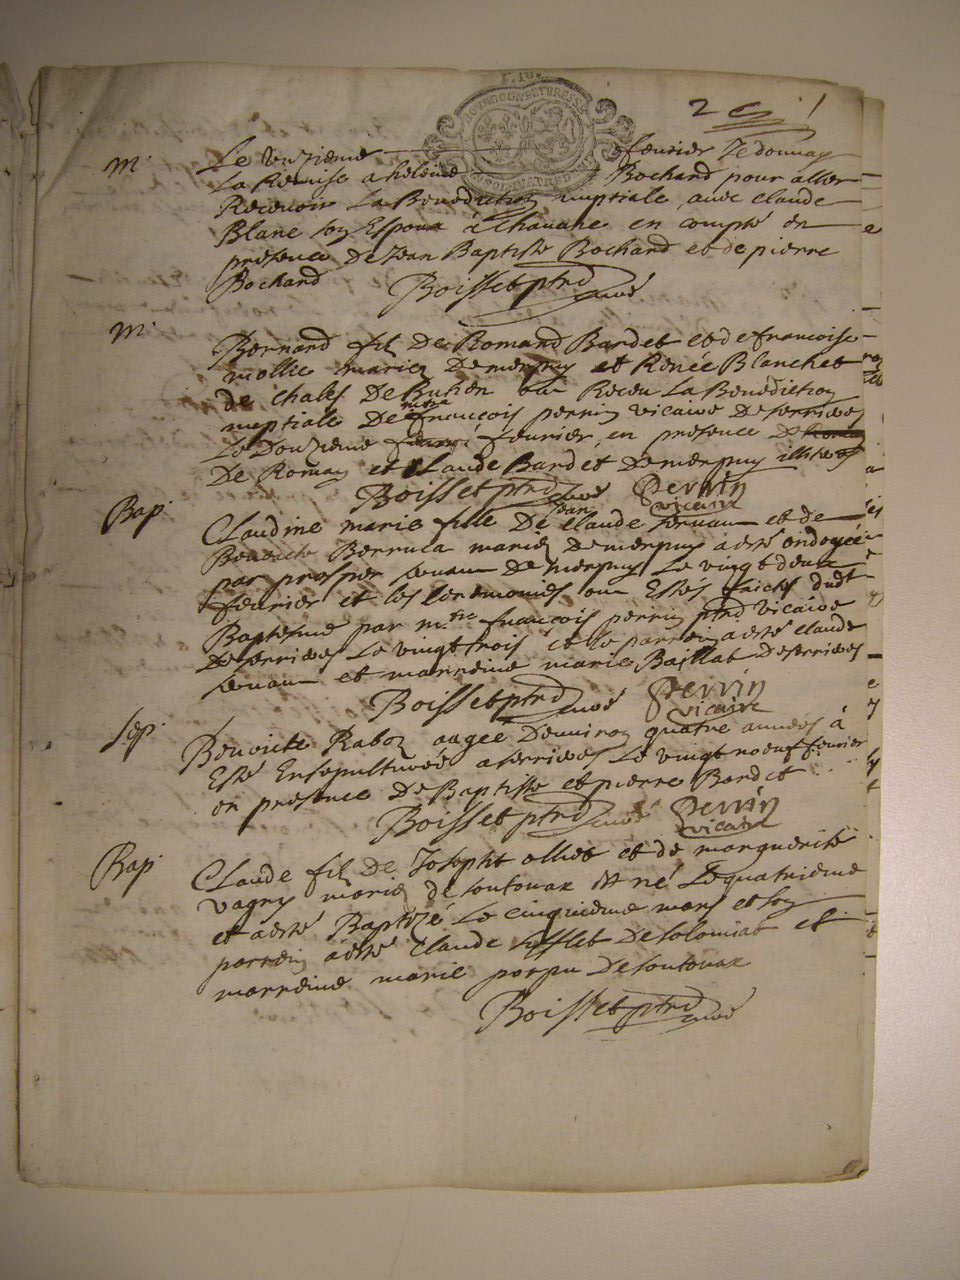 2
m. Le unzieme fevrier Je donnay
La Remise a heleine Bochard pour aller
Recevoir La Benediction nuptiale, avec claude
Blanc son Espoux en compté en
presence De Jean Baptiste Bochard et de pierre
Bochard Boisset ptre curé
m. Bernard fil De Romand Bardet et de francoise
mollie mariez De merpuy et Renée Blanchet
de chales De Buhen ont Receu La Benediction
nuptiale De mre francois perrin vicaire De serrieres
Le Douzieme fevrier, en presence De
De Roman et Claude Bardet De merpuy
Boisset ptre curé Perrin vicaire
Bap. Claudine marie fille De Jean claude et de
mariez De merpuy a esté ondoyée
par prosper De merpuy Le vingt deux
fevrier et les ceremonies ont Estés faictes dudt
Baptesme par mtre francois perrin ptre vicaire
De serrieres Le vingt trois et le parrein a esté claude
et marreine marie Baillat De serrieres
Boisset ptre curé Perrin vicaire
sep. Benoite Raboz aagee Denviron quatre annees à
Esté Ensepulturée a serrieres Le vingt noeuf fevrier
en presence De Baptiste et pierre Bardet
Boisset ptre curé Perrin vicaire
Bap. Claude fil De Joseph olliet et de marguerite
vagny mariez de soutouax est né Le quatrieme
et a esté Baptizé Le cinquieme mars et son
parrein a esté Claude sifflet De solomiat et
marreine marie De soutouax
Boisset ptre curé